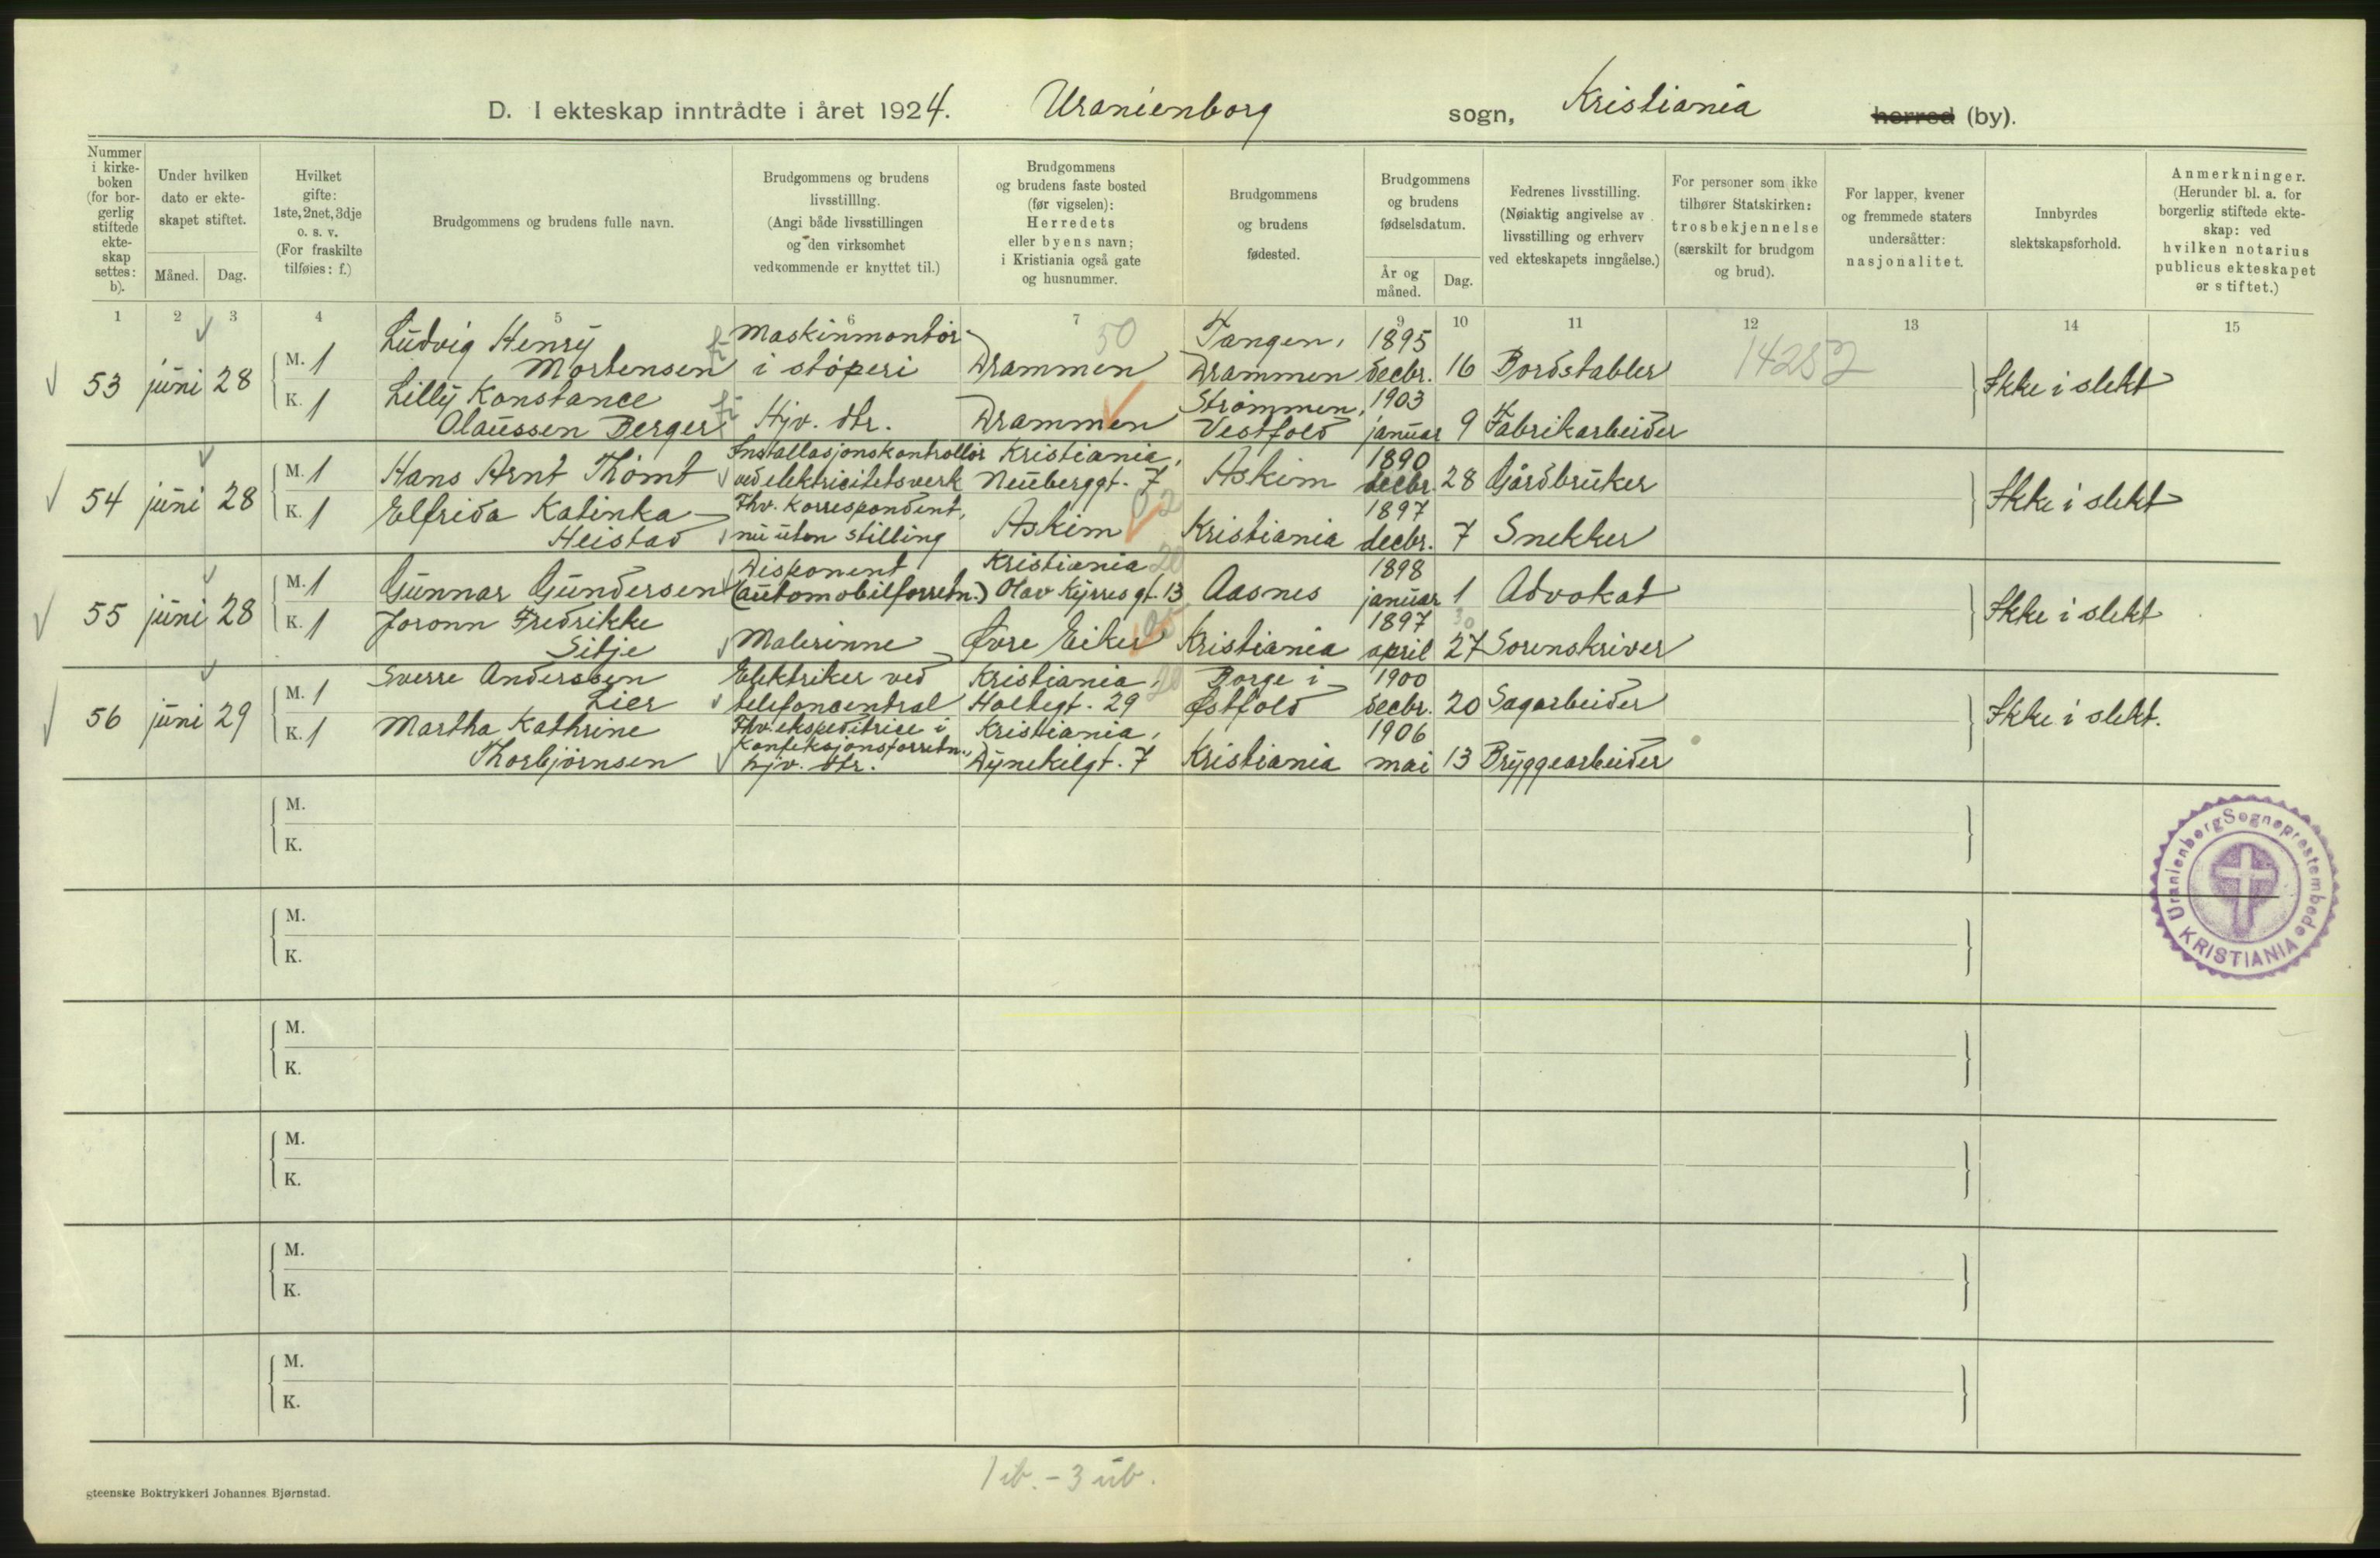 D. I ekteskap inntrådte i året 1924. Uranienborg sogn, Kristiania herred (by).
Nummer i kirke- boken (for bor- gerlig stiftede ekte- skap settes: b).
Under hvilken dato er ekte- skapet stiftet.
Måned. Dag.
Hvilket gifte: 1ste, 2net, 3dje o. s. v. (For fraskilte tilføies: f.)
Brudgommens og brudens fulle navn.
Brudgommens og brudens livsstilling. (Angi både livsstillingen og den virksomhet vedkommende er knyttet til.)
Brudgommens og brudens faste bosted (før vigselen): Herredets eller byens navn; i Kristiania også gate og husnummer.
Brudgommens og brudens fødested.
Brudgommens og brudens fødselsdatum.
År og måned. Dag.
Fedrenes livsstilling. (Nøiaktig angivelse av livsstilling og erhverv ved ekteskapets inngåelse.)
For personer som ikke tilhører Statskirken: trosbekjennelse (særskilt for brudgom og brud).
For lapper, kvener og fremmede staters undersåtter: nasjonalitet.
Innbyrdes slektskapsforhold.
Anmerkninger. (Herunder bl. a. for borgerlig stiftede ekte- skap: ved hvilken notarius publicus ekteskapet er stiftet.)
1 2 3 4 5 6 7 8 9 10 11 12 13 14 15
53 juni 28 M. 1 Ludvig Henry Mortensen fi Maskinmontör i stöperi Drammen 50 Tangen, Drammen 1895 decbr. 16 Bordstabler 14252 Ikke i slekt
K. 1 Lilly Konstance Olaussen Berger fi Hjv. dtr. Drammen Strømmen, Vestfold 1903 januar 9 Fabrikarbeider
54 juni 28 M. 1 Hans Arnt Thomt Installasjonskontrollör ved elektricitetsverk Kristiania, Neuberggt. 7 Askim 1890 decbr. 28 Gårdbruker Ikke i slekt
K. 1 Elfrida Katinka Heistad Fhv. korrespondent, nu uten stilling Askim 02 Kristiania 1897 decbr. 7 Snekker
55 juni 28 M. 1 Gunnar Gundersen Disponent (automobilforretn.) Kristiania 20 Olav Kyrresgt. 13 Aasnes 1898 januar 1 Advokat Ikke i slekt
K. 1 Joronn Fredrikke Sitje Malerinne Øvre Eiker Kristiania 1897 april 27 30 Sorenskriver
56 juni 29 M. 1 Sverre Anderssen Lier Elektriker ved telefoncentral Kristiania, 20 Holtegt. 29 Borge i Østfold 1900 decbr. 20 Sagarbeider Ikke i slekt.
K. 1 Martha Kathrine Thorbjörnsen Fhv. ekspeditrise i konfeksjonsforretn., hjv. dtr. Kristiania, Dynekilgt. 7 Kristiania 1906 mai 13 Bryggearbeider
M.
K.
M.
K.
M.
K.
M.
K.
M.
K.
M.
K.
Uranienborg Sogneprestembede KRISTIANIA
1 ib. - 3 ub.
gteenske Boktrykkeri Johannes Bjørnstad.